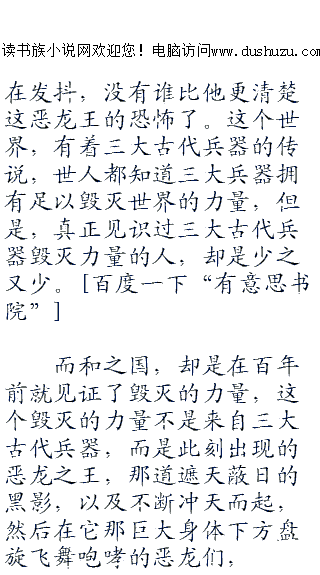 读书族小说网欢迎您！电脑访问www.dushuzu.com
在发抖，没有谁比他更清楚
这恶龙王的恐怖了。这个世
界，有着三大古代兵器的传
说，世人都知道三大兵器拥
有足以毁灭世界的力量，但
是，真正见识过三大古代兵
器毁灭力量的人，却是少之
又少。[百度一下“有意思书
院”]
　　而和之国，却是在百年
前就见证了毁灭的力量，这
个毁灭的力量不是来自三大
古代兵器，而是此刻出现的
恶龙之王，那道遮天蔽日的
黑影，以及不断冲天而起，
然后在它那巨大身体下方盘
旋飞舞咆哮的恶龙们，